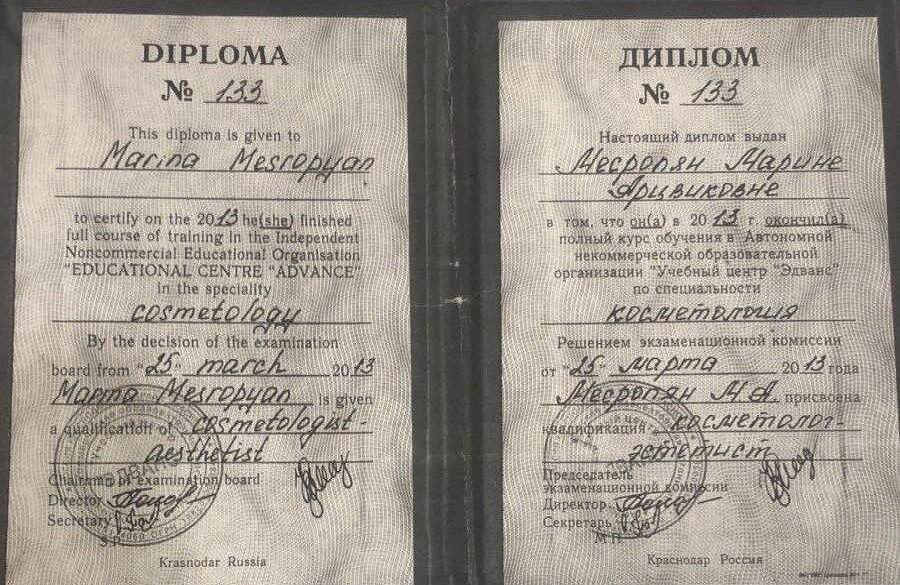 DIPLOMA
№ 133
This diploma is given to
Marina Mesropyan
to certify on the 2013 he(she) finished
full course of training in the Independent
Noncommercial Educational Organisation
"EDUCATIONAL CENTRE "ADVANCE"
in the speciality
cosmetology
By the decision of the examination
board from "25" march 2013
Marina Mesropyan is given
a qualification of cosmetologist-
aesthetist
Chairman of examination board
Director
Secretary
Krasnodar Russia
ДИПЛОМ
№ 133
Настоящий диплом выдан
Месропян Марине
Арцвиковне
в том, что он(а) в 2013 г. окончил(а)
полный курс обучения в Автономной
некоммерческой образовательной
организации "Учебный центр "Эдванс"
по специальности
косметология
Решением экзаменационной комиссии
от "25" марта 2013 года
Месропян М.А. присвоена
квалификация косметолог-
эстетист
Председатель
экзаменационной комиссии
Директор
Секретарь
М.П.
Краснодар Россия